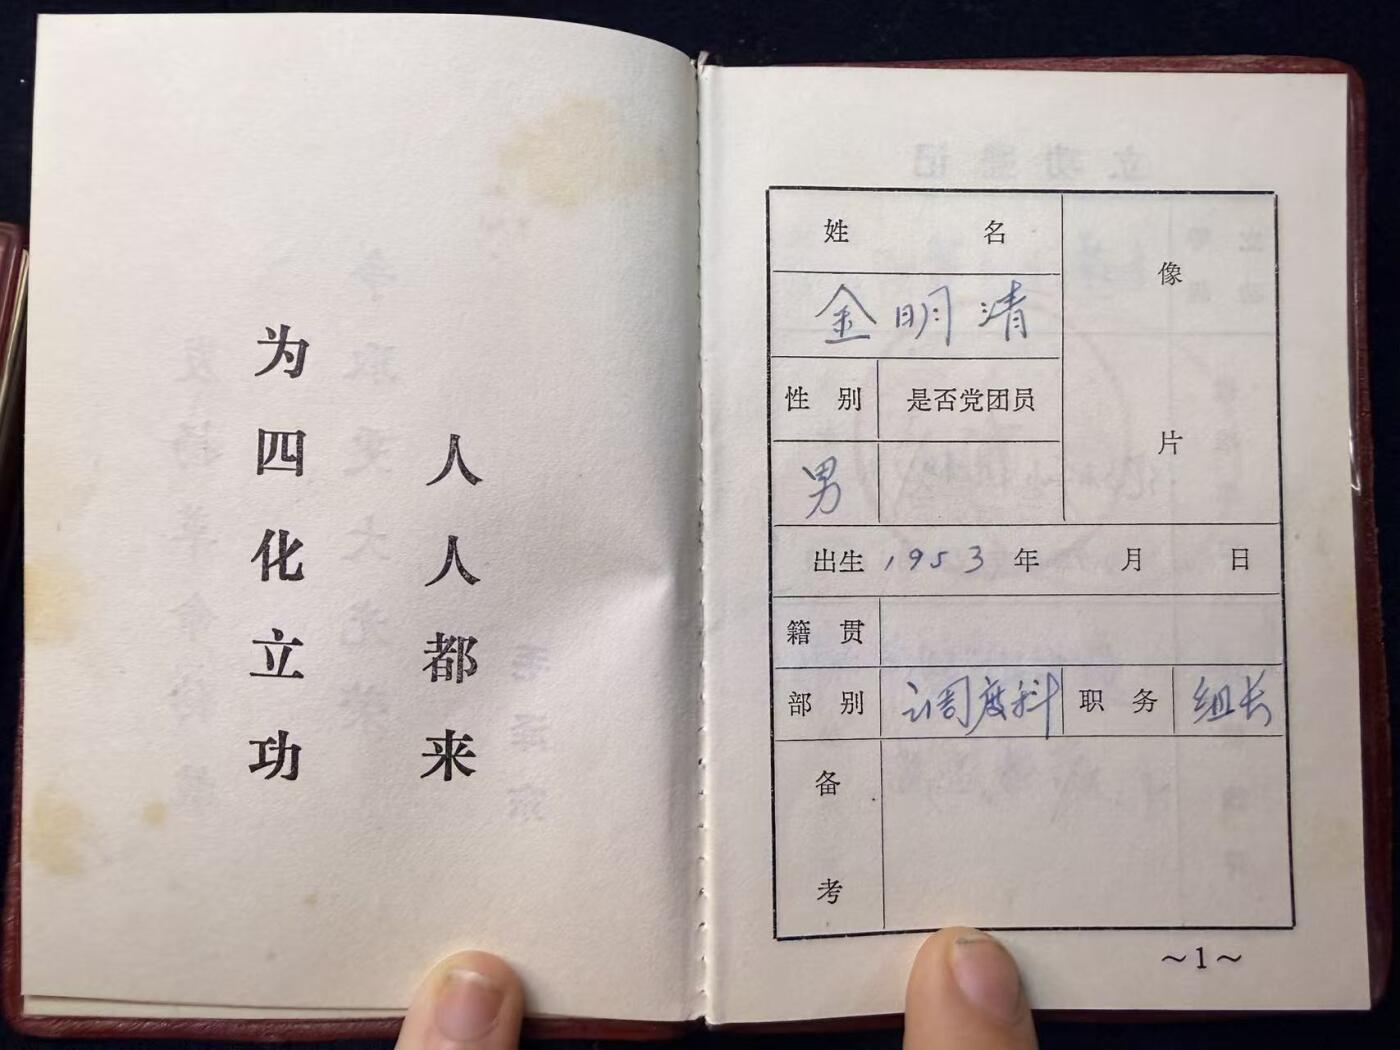 人人都来
为四化立功
姓名
金明清
像片
性别 是否党团员
男
出生 1953 年 月 日
籍贯
部别 调度科 职务 组长
备考
～1～